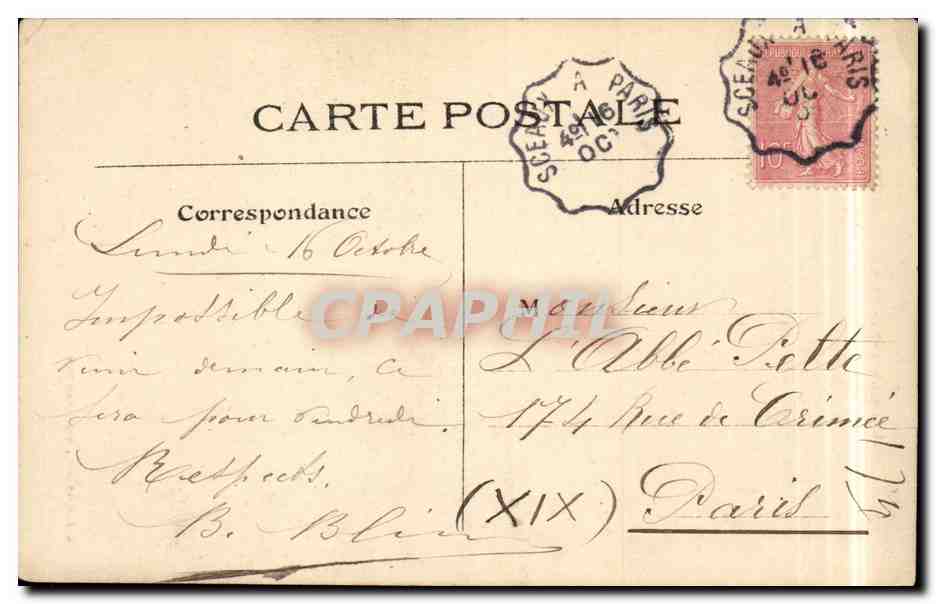 CARTE POSTALE
SCEAUX A PARIS
4º 16
OC
SCEAUX A PARIS
4º 16
OC
REPUBLIQUE
10c
Correspondance
Adresse
Lundi 16 Octobre
Impossible de
venir demain, ce
sera pour vendredi.
Respects.
B. Blin
Monsieur
L'Abbé Pette
174 Rue de Crimée
(XIX) Paris
174
CPAPHIL